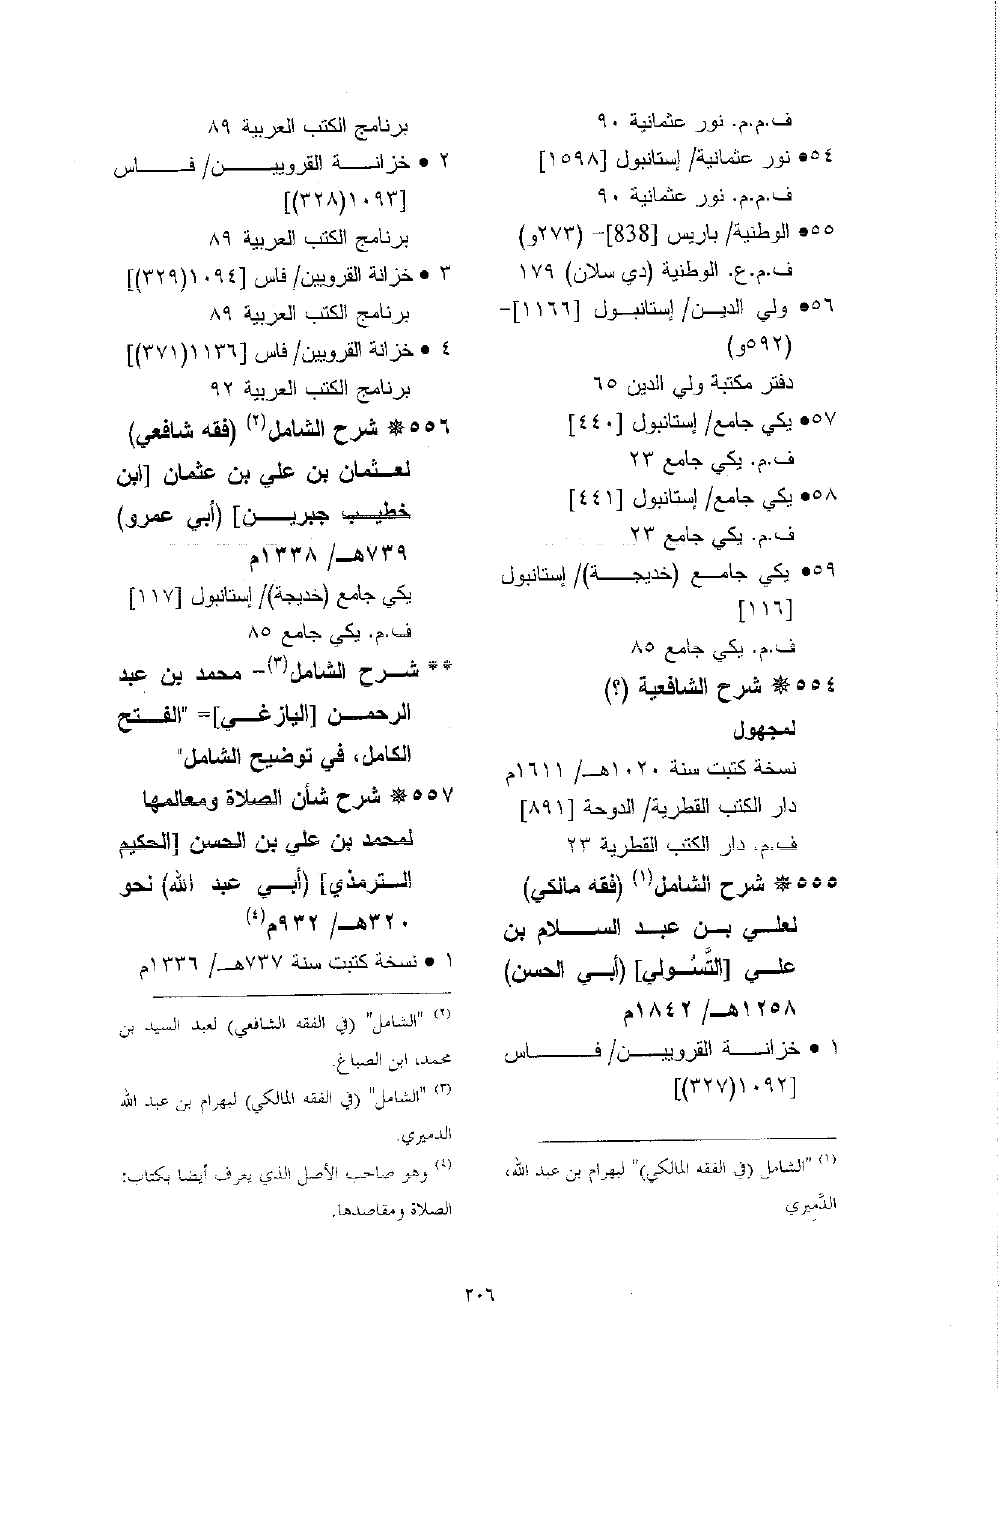 ف.م.م. نور عثمانية ٩٠
٥٤• نور عثمانية/ إستانبول [١٥٩٨]
ف.م.م. نور عثمانية ٩٠
٥٥• الوطنية/ باريس [838]- (٢٧٣و)
ف.م.ع. الوطنية (دي سلان) ١٧٩
٥٦• ولي الديـن/ إستانبـول [١١٦٦]-
(٥٩٢و)
دفتر مكتبة ولي الدين ٦٥
٥٧• يكي جامع/ إستانبول [٤٤٠]
ف.م. يكي جامع ٢٣
٥٨• يكي جامع/ إستانبول [٤٤١]
ف.م. يكي جامع ٢٣
٥٩• يكي جامـع (خديجـــة)/ إستانبول
[١١٦]
ف.م. يكي جامع ٨٥
٥٥٤* شرح الشافعية (؟)
لمجهول
نسخة كتبت سنة ١٠٢٠هـ/ ١٦١١م
دار الكتب القطرية/ الدوحة [٨٩١]
ف.م. دار الكتب القطرية ٢٣
٥٥٥* شرح الشامل(١) (فقه مالكي)
لعلـي بـن عبـد الســـلام بن
علـي [التَّسُـولي] (أبـي الحسن)
١٢٥٨هـ/ ١٨٤٢م
١ • خزانـــة القرويــــن/ فـــــاس
[١٠٩٢(٣٢٧)]
(١) "الشامل (في الفقه المالكي)" لبهرام بن عبد الله،
الدَّميري
برنامج الكتب العربية ٨٩
٢ • خزانـــة القرويـــــن/ فـــــاس
[١٠٩٣(٣٢٨)]
برنامج الكتب العربية ٨٩
٣ • خزانة القرويين/ فاس [١٠٩٤(٣٢٩)]
برنامج الكتب العربية ٨٩
٤ • خزانة القرويين/ فاس [١١٣٦(٣٧١)]
برنامج الكتب العربية ٩٢
٥٥٦* شرح الشامل(٢) (فقه شافعي)
لعـثمان بن علي بن عثمان [ابن
خطيـب جبريـــن] (أبي عمرو)
٧٣٩هـ/ ١٣٣٨م
يكي جامع (خديجة)/ إستانبول [١١٧]
ف.م. يكي جامع ٨٥
** شـرح الشامل(٣)- محمد بن عبد
الرحمــن [اليازغــي]= "الفــتح
الكامل، في توضيح الشامل"
٥٥٧* شرح شأن الصلاة ومعالمها
لمحمد بن علي بن الحسن [الحكيم
الـترمذي] (أبـي عبد الله) نحو
٣٢٠هـ/ ٩٣٢م(٤)
١ • نسخة كتبت سنة ٧٣٧هـ/ ١٣٣٦م
(٢) "الشامل" (في الفقه الشافعي) لعبد السيد بن
محمد، ابن الصباغ.
(٣) "الشامل" (في الفقه المالكي) لبهرام بن عبد الله
الدميري.
(٤) وهو صاحب الأصل الذي يعرف أيضا بكتاب:
الصلاة ومقاصدها.
٢٠٦